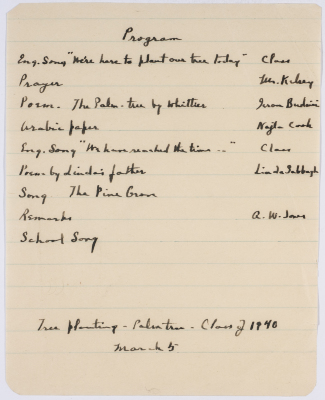 Program
Eng. Song "We're here to plant our tree today" Class
Prayer Mr. Kelsey
Poem - The Palm-tree by Whittier
Arabic paper Najla Cook
Eng. Song "We have reached the time - -" Class
Poem by Linda's father Linda
Song The Pine Grove
Remarks A. W. Jones
School Song
Tree planting - Palm tree - Class of 1940
March 5